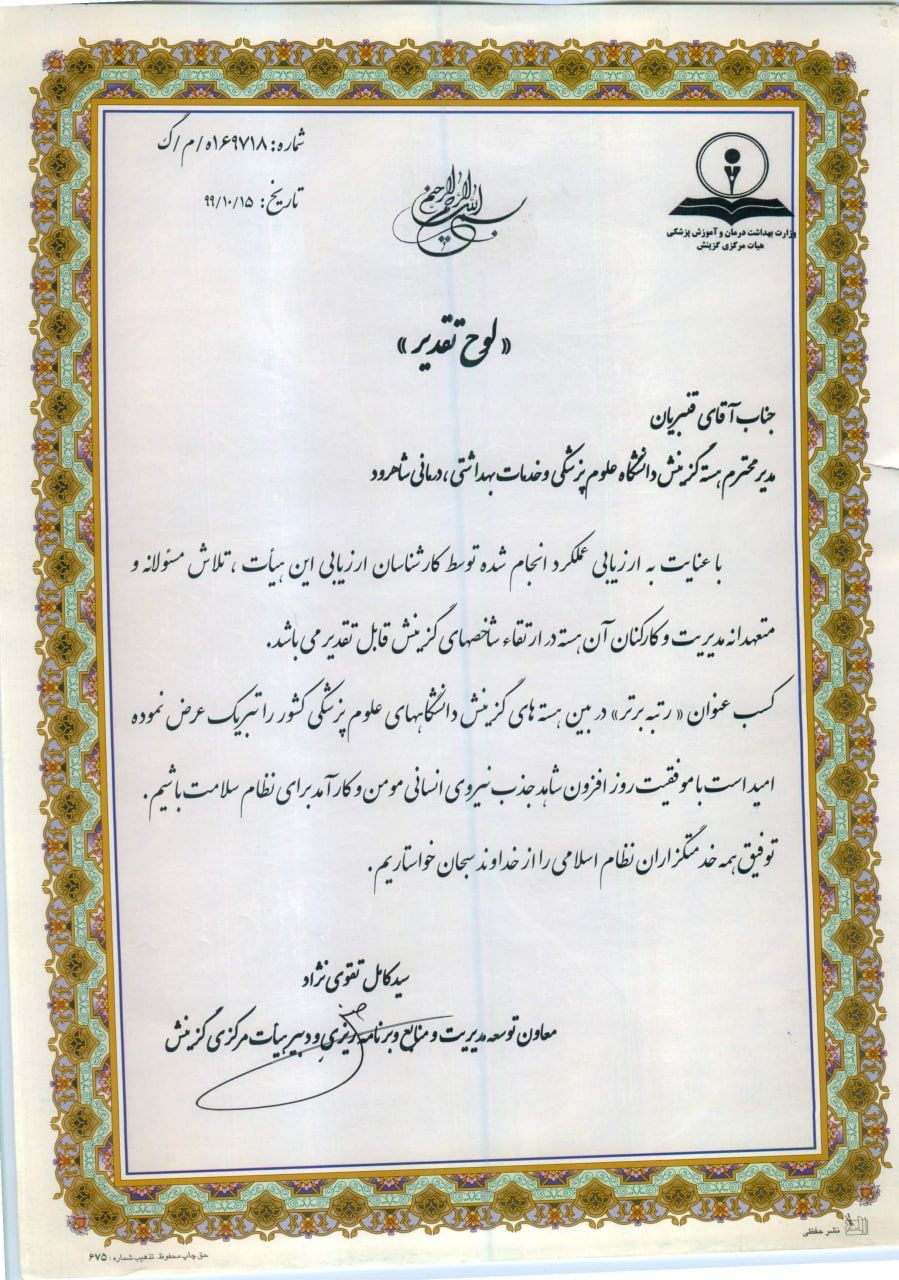 شماره: ۱۶۹۷۱۸ه/م/گ
تاریخ: ۹۹/۱۰/۱۵
بسم الله الرحمن الرحیم
وزارت بهداشت درمان و آموزش پزشکی
هیات مرکزی گزینش
« لوح تقدیر »
جناب آقای قنبریان
مدیر محترم هسته گزینش دانشگاه علوم پزشکی و خدمات بهداشتی ، درمانی شاهرود
با عنایت به ارزیابی عملکرد انجام شده توسط کارشناسان ارزیابی این هیأت ، تلاش مسئولانه و
متعهدانه مدیریت و کارکنان آن هسته در ارتقاء شاخصهای گزینش قابل تقدیر می باشد.
کسب عنوان « رتبه برتر» در بین هسته های گزینش دانشگاههای علوم پزشکی کشور را تبریک عرض نموده
امید است با موفقیت روز افزون شاهد جذب نیروی انسانی مومن و کارآمد برای نظام سلامت باشیم .
توفیق همه خدمتگزاران نظام اسلامی را از خداوند سبحان خواستاریم .
سید کامل تقوی نژاد
معاون توسعه مدیریت و منابع و برنامه ریزی و دبیر هیأت مرکزی گزینش
نشر حفظی
حق چاپ محفوظ. تذهیب شماره : ۶۷۵